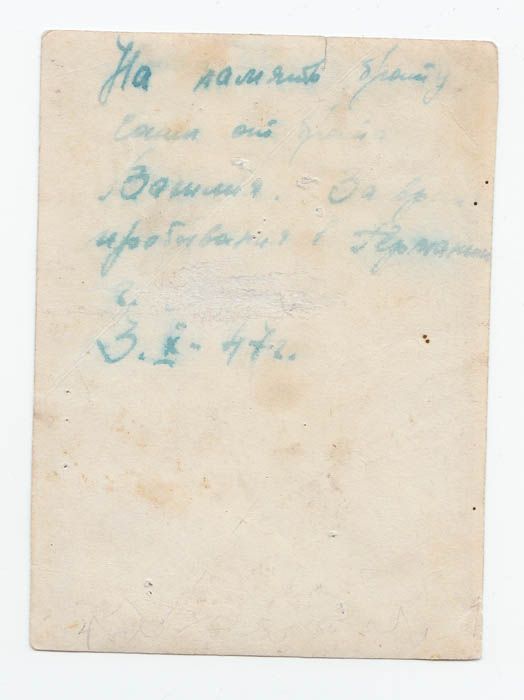 На память брату
Саши от брата
Василия. За вр
пробывания в Германии
г.
3.X-47г.